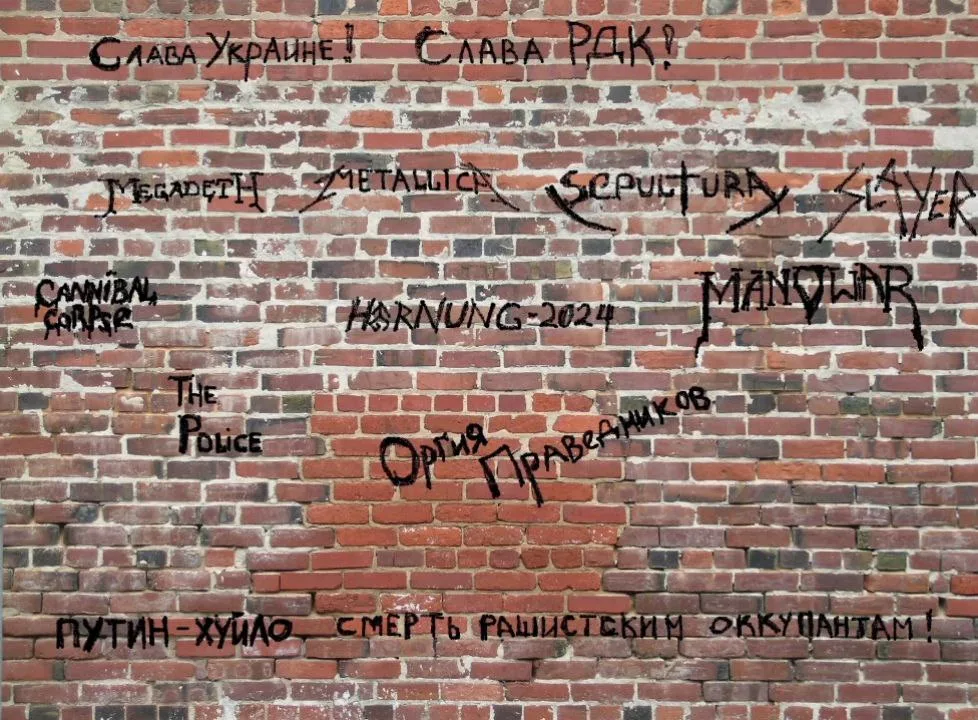 Слава Украине! Слава РДК!
Megadeth Metallica Sepultura Slayer
Cannibal Corpse
HORNUNG-2024
Manowar
The Police
Оргия Праведников
ПУТИН-ХУЙЛО СМЕРТЬ РАШИСТСКИМ ОККУПАНТАМ!